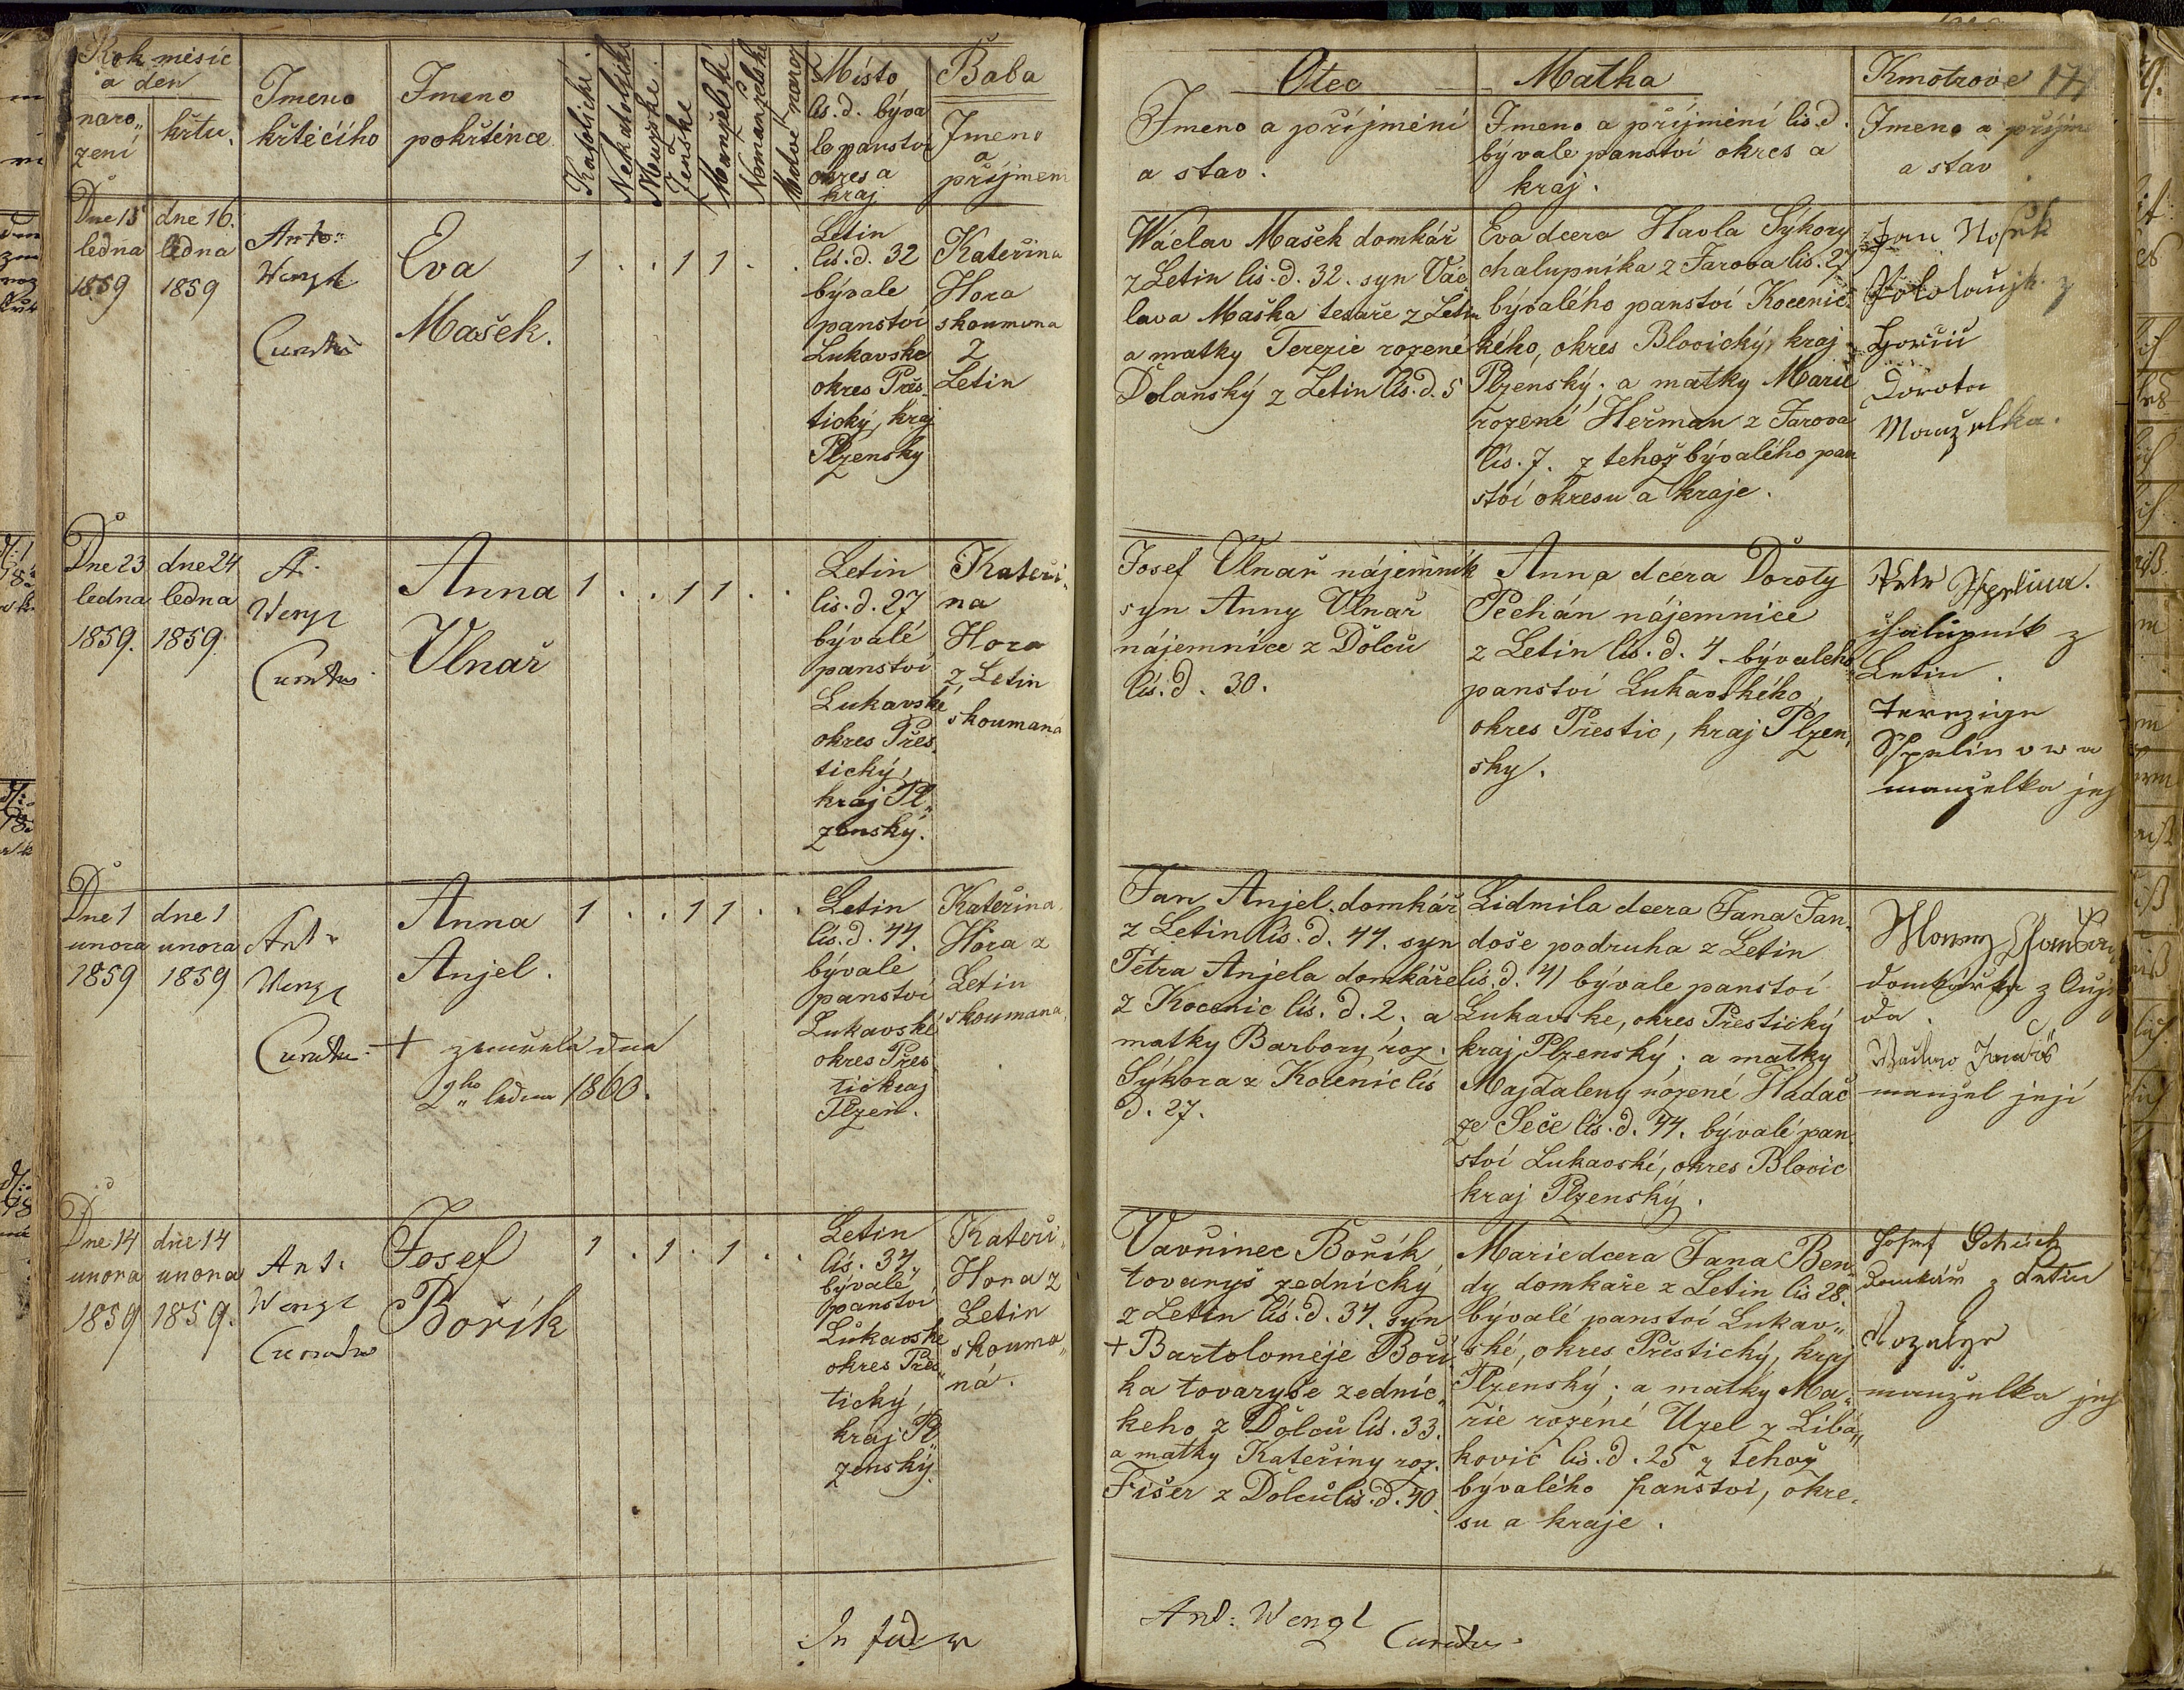 Rok měsíc
a den
naro„
zení
křtu.
Jmeno
křtícího
Jmeno
pokřtěnce
Katolické.
Nekatolické
Mužské.
Ženské
Manželské
Nemanželské
Mrtvě naroz
Místo
lis. d. býva
lo panství
okres a
kraj
Baba
Jmeno
a
příjmení
Dne 15
ledna
1859
dne 16.
ledna
1859
Anto:
Wengl
Curatus
Eva
Mašek.
1 . . 1 1 . .
Letin
lis. d. 32
bývale
panství
Lukavske
okres Přes„
tický, kraj
Plzenský
Kateřina
Hora
skoumena
z
Letin
Dne 23
ledna
1859.
dne 24
ledna
1859.
A.
Wengl
Curatus
Anna
Vlnař
1 . . 1 1 . .
Letin
lis. d. 27
bývalé
panství
Lukavské
okres Přes„
tický,
kraj Pl„
zenský.
Kateři„
na
Hora
z Letin
skoumaná
Dne 1
unora
1859
dne 1
unora
1859
Ant:
Wengl
Curatus
Anna
Anjel.
+ zemřela dne
2ho ledna 1860.
1 . . 1 1 . .
Letin
lis. d. 44.
bývale
panství
Lukavské
okres Přes
tic kraj
Plzen.
Kateřina
Hora z
Letin
skoumana,
Dne 14
unora
1859
dne 14
unora
1859.
Ant:
Wengl
Curatus
Josef
Bořík
1 . 1 . 1 . .
Letin
lis. 34,
bývalé
panství
Lukavské
okres Přes„
tický,
kraj Pl„
zenský.
Kateři„
Hora z
Letin
skouma„
ná.
In fidem
Otec
Jmeno a příjmení
a stav.
Matka
Jmeno a příjmení lis. d.
bývale panství okres a
kraj.
Kmotrove 17
Jmeno a příjme
a stav
Wáclav Mašek domkář
z Letin lis. d. 32. syn Vác
lava Maška tesaře z Letin
a matky Terezie rozené
Dolanský z Letin lis. d. 5
Eva dcera Havla Sýkory
chalupníka z Jarova lis. 27
bývalého panství Kocenic
kého, okres Blovický, kraj
Plzenský; a matky Marie
rozené Heřman z Jarova
lis. 7. z tehož bývalého pan
ství okresu a kraje.
Jan
z
Dorota
Manželka.
Josef Vlnař nájemník
syn Anny Vlnař
nájemnice z Dolcu
lis. d. 30.
Anna dcera Doroty
Pechán nájemnice
z Letin lis. d. 4. bývaleho
panství Lukavského,
okres Přestic, kraj Plzen„
sky.
Petr Sspelina.
chalupník z
Letin.
Terezige
Sspelinowa
manželka jeh
Jan Anjel domkář
z Letin lis. d. 44. syn
Petra Anjela domkáře
z Kocenic lis. d. 2. a
matky Barbory roz.
Sýkora z Kocenic lis
d. 27.
Lidmila dcera Jana Jan„
doše podruha z Letin
lis. d. 41 bývale panství
Lukavske, okres Přestický
kraj Plzenský; a matky
Majdaleny rozené Hadač
ze Seče lis. d. 44. bývalé pan„
ství Lukavské, okres Blovic
kraj Plzenský.
domkářka z Auje
da.
manžel její
Vavřinec Bořík
tovaryš zednický
z Letin lis. d. 34. syn
+ Bartoloměje Boří„
ka tovaryše zednic„
keho z Dolcu lis. 33.
a matky Kateřiny roz.
Fišer z Dolcu lis. d. 40.
Marie dcera Jana Ben„
dy domkaře z Letin lis 28.
bývalé panství Lukav„
ské, okres Přestický, kraj
Plzenský; a matky Ma„
rie rozené Uzel z Libá„
kovic lis. d. 25 z tehož
bývalého panství, okre„
su a kraje.
Josef
domkář z Letin
Rozalye
manželka jeh
Ant: Wengl
Curatus.